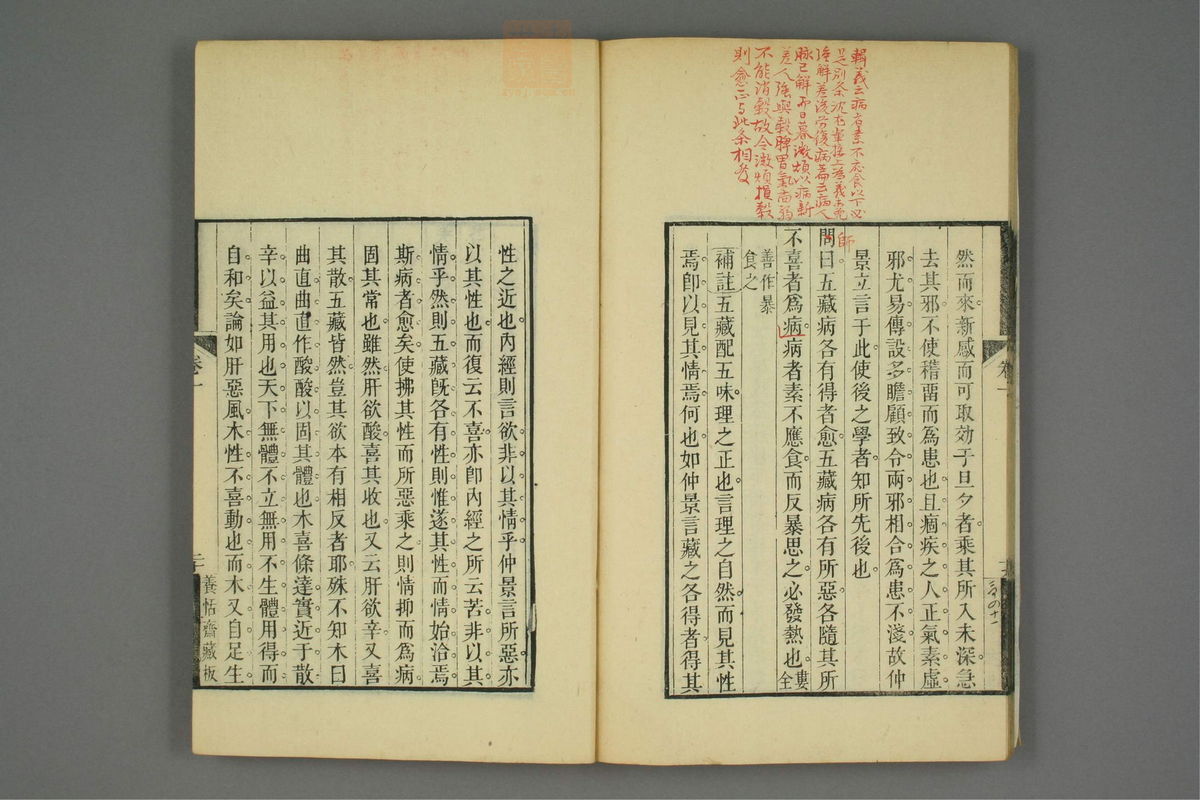 輯義云病者素不應食以下必
是別条沈
陰陽差後勞復病篇云病人
脉已解而日暮微煩以病新
差人強與穀脾胃氣尚弱
不能消穀故令微煩損穀
則愈正與此条相發
師
然而來新感而可取効于旦夕者乘其所入未深急
去其邪不使稽畱而爲患也且痼疾之人正氣素虛
邪尤易傳設多瞻顧致令兩邪相合爲患不淺故仲
景立言于此使後之學者知所先後也
問曰五藏病各有得者愈五藏病各有所惡各隨其所
不喜者爲病病者素不應食而反暴思之必發熱也婁全
善作暴
食之
補註五藏配五味理之正也言理之自然而見其性
焉卽以見其情焉何也如仲景言藏之各得者得其
卷一
性之近也內經則言欲非以其情乎仲景言所惡亦
以其性也而復云不喜亦卽內經之所云苦非以其
情乎然則五藏旣各有性則惟遂其性而情始洽焉
斯病者愈矣使拂其性而所惡乘之則情抑而爲病
固其常也雖然肝欲酸喜其收也又云肝欲辛又喜
其散五藏皆然豈其欲本有相反者耶殊不知木曰
曲直曲直作酸酸以固其體也木喜條達實近于散
辛以益其用也天下無體不立無用不生體用得而
自和矣論如肝惡風木性不喜動也而木又自足生
卷一
養恬齋藏板